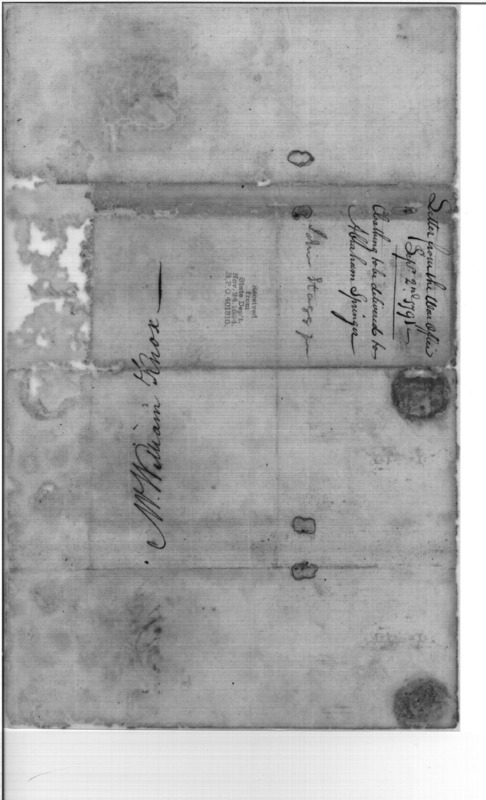 Letter from the War Office
Sept 2nd 1791
Cloathing to be delivered to
Abraham Springer
John Stagg Jr
Received
from
State Dep't.
Nov. 24, 1894.
R. P. O. 401310.
Mr. William Knox